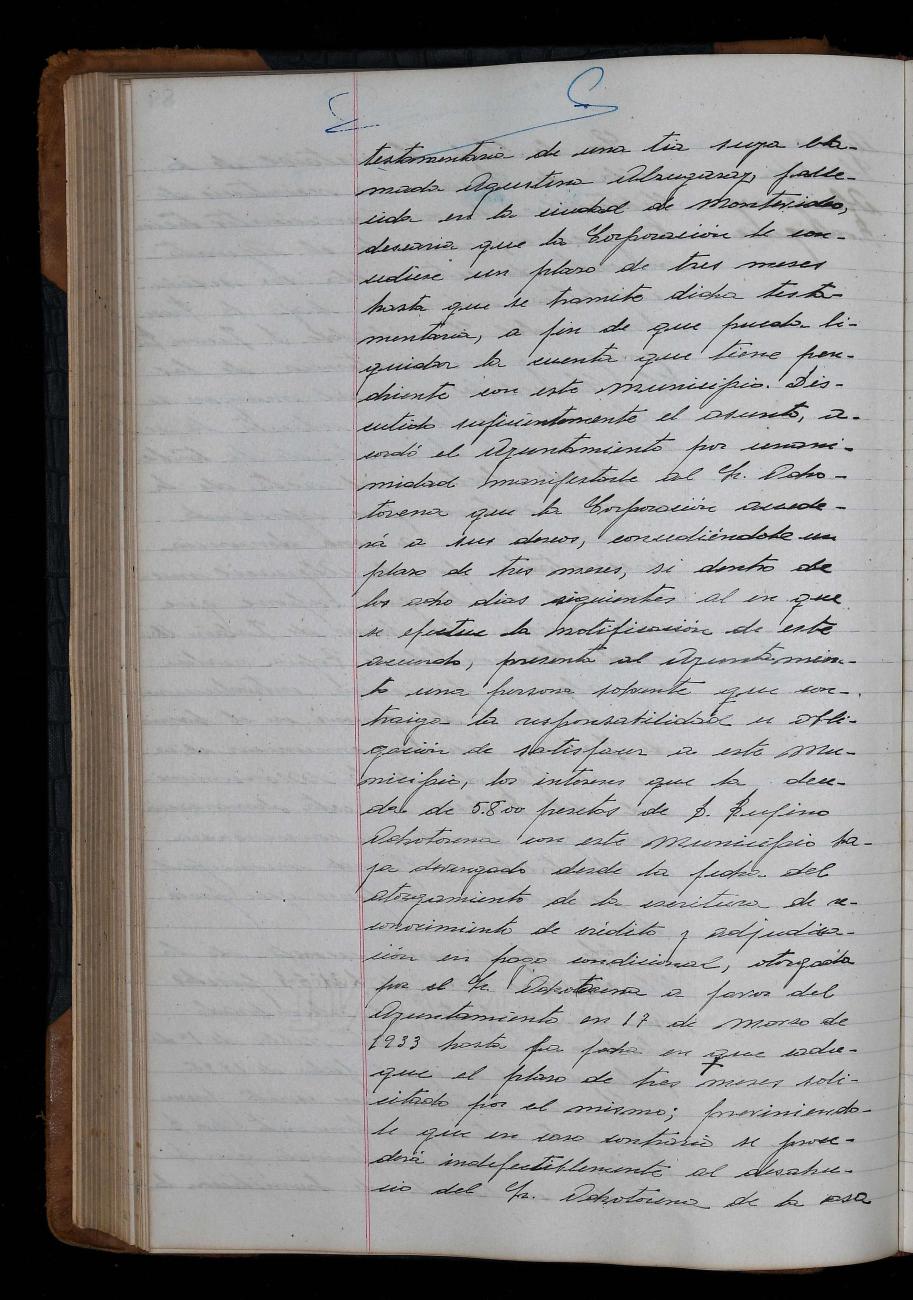 testamentaria de una tia suya lla-
mada Agustina Alzugaray, falle-
cida en la ciudad de Montevideo,
desearia que la Corporación le con-
cediese un plazo de tres meses
hasta que se tramite dicha testa-
mentaria, a fin de que pueda li-
quidar la cuenta que tiene pen-
diente con este Municipio. Dis-
cutido suficientemente el asunto, a-
cordó el Ayuntamiento por unani-
midad manifestarle al Sr. Ocho-
torena que la Corporación accede-
rá a sus deseos, concediéndole un
plazo de tres meses, si dentro de
los ocho dias siguientes al en que
se efectue la notificación de este
acuerdo, presenta al Ayuntamien-
to una persona solvente que con-
traiga la responsabilidad u obli-
gación de satisfacer a este Mu-
nicipio, los intereses que la deu-
da de 5.800 pesetas de D. Rufino
Ochotorena con este Municipio ha-
ya devengado desde la fecha del
otorgamiento de la escritura de re-
conocimiento de crédito y adjudica-
ción en pago condicional, otorgada
por el Sr. Ochotorena a favor del
Ayuntamiento en 17 de Marzo de
1933 hasta la fecha en que cadu-
que el plazo de tres meses soli-
citado por el mismo; previniendo-
le que en caso contrario se proce-
derá indefectiblemente al desahu-
cio del Sr. Ochotorena de la casa